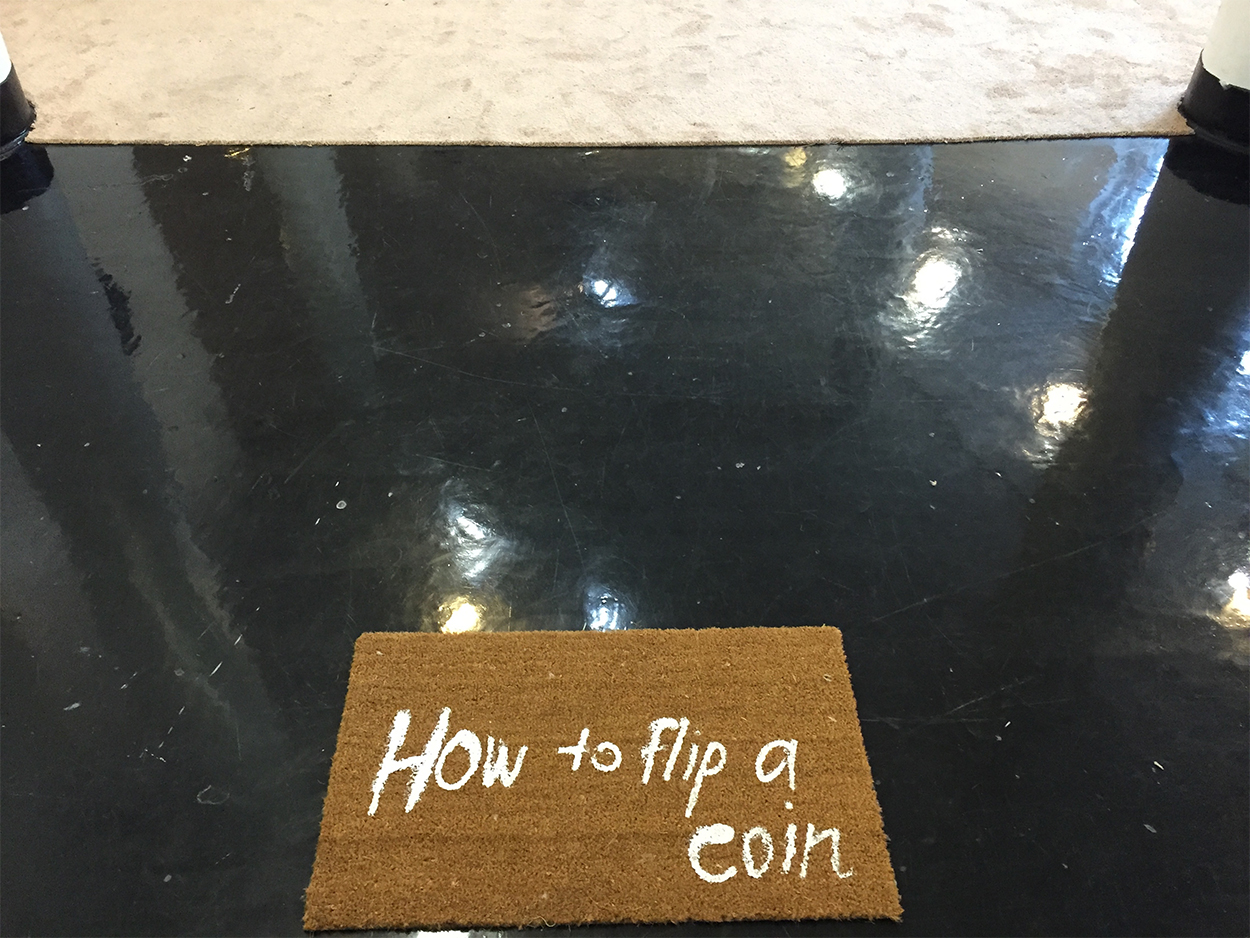 How to flip a
coin